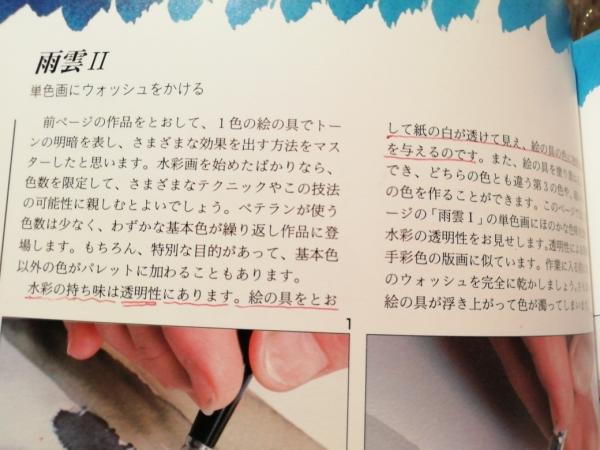 雨雲II
単色画にウォッシュをかける
前ページの作品をとおして、１色の絵の具でトー
ンの明暗を表し、さまざまな効果を出す方法をマス
ターしたと思います。水彩画を始めたばかりなら、
色数を限定して、さまざまなテクニックやこの技法
の可能性に親しむとよいでしょう。ベテランが使う
色数は少なく、わずかな基本色が繰り返し作品に登
場します。もちろん、特別な目的があって、基本色
以外の色がパレットに加わることもあります。
水彩の持ち味は透明性にあります。絵の具をとお
して紙の白が透けて見え、絵の具の色に
を与えるのです。また、絵の具を塗り
でき、どちらの色とも違う第３の色や、
の色を作ることができます。このページでは
ージの「雨雲Ｉ」の単色画にほかの色
水彩の透明性をお見せします。透明性による
手彩色の版画に似ています。作業に入る前に
のウォッシュを完全に乾かしましょう。
絵の具が浮き上がって色が濁ってしまいま
1